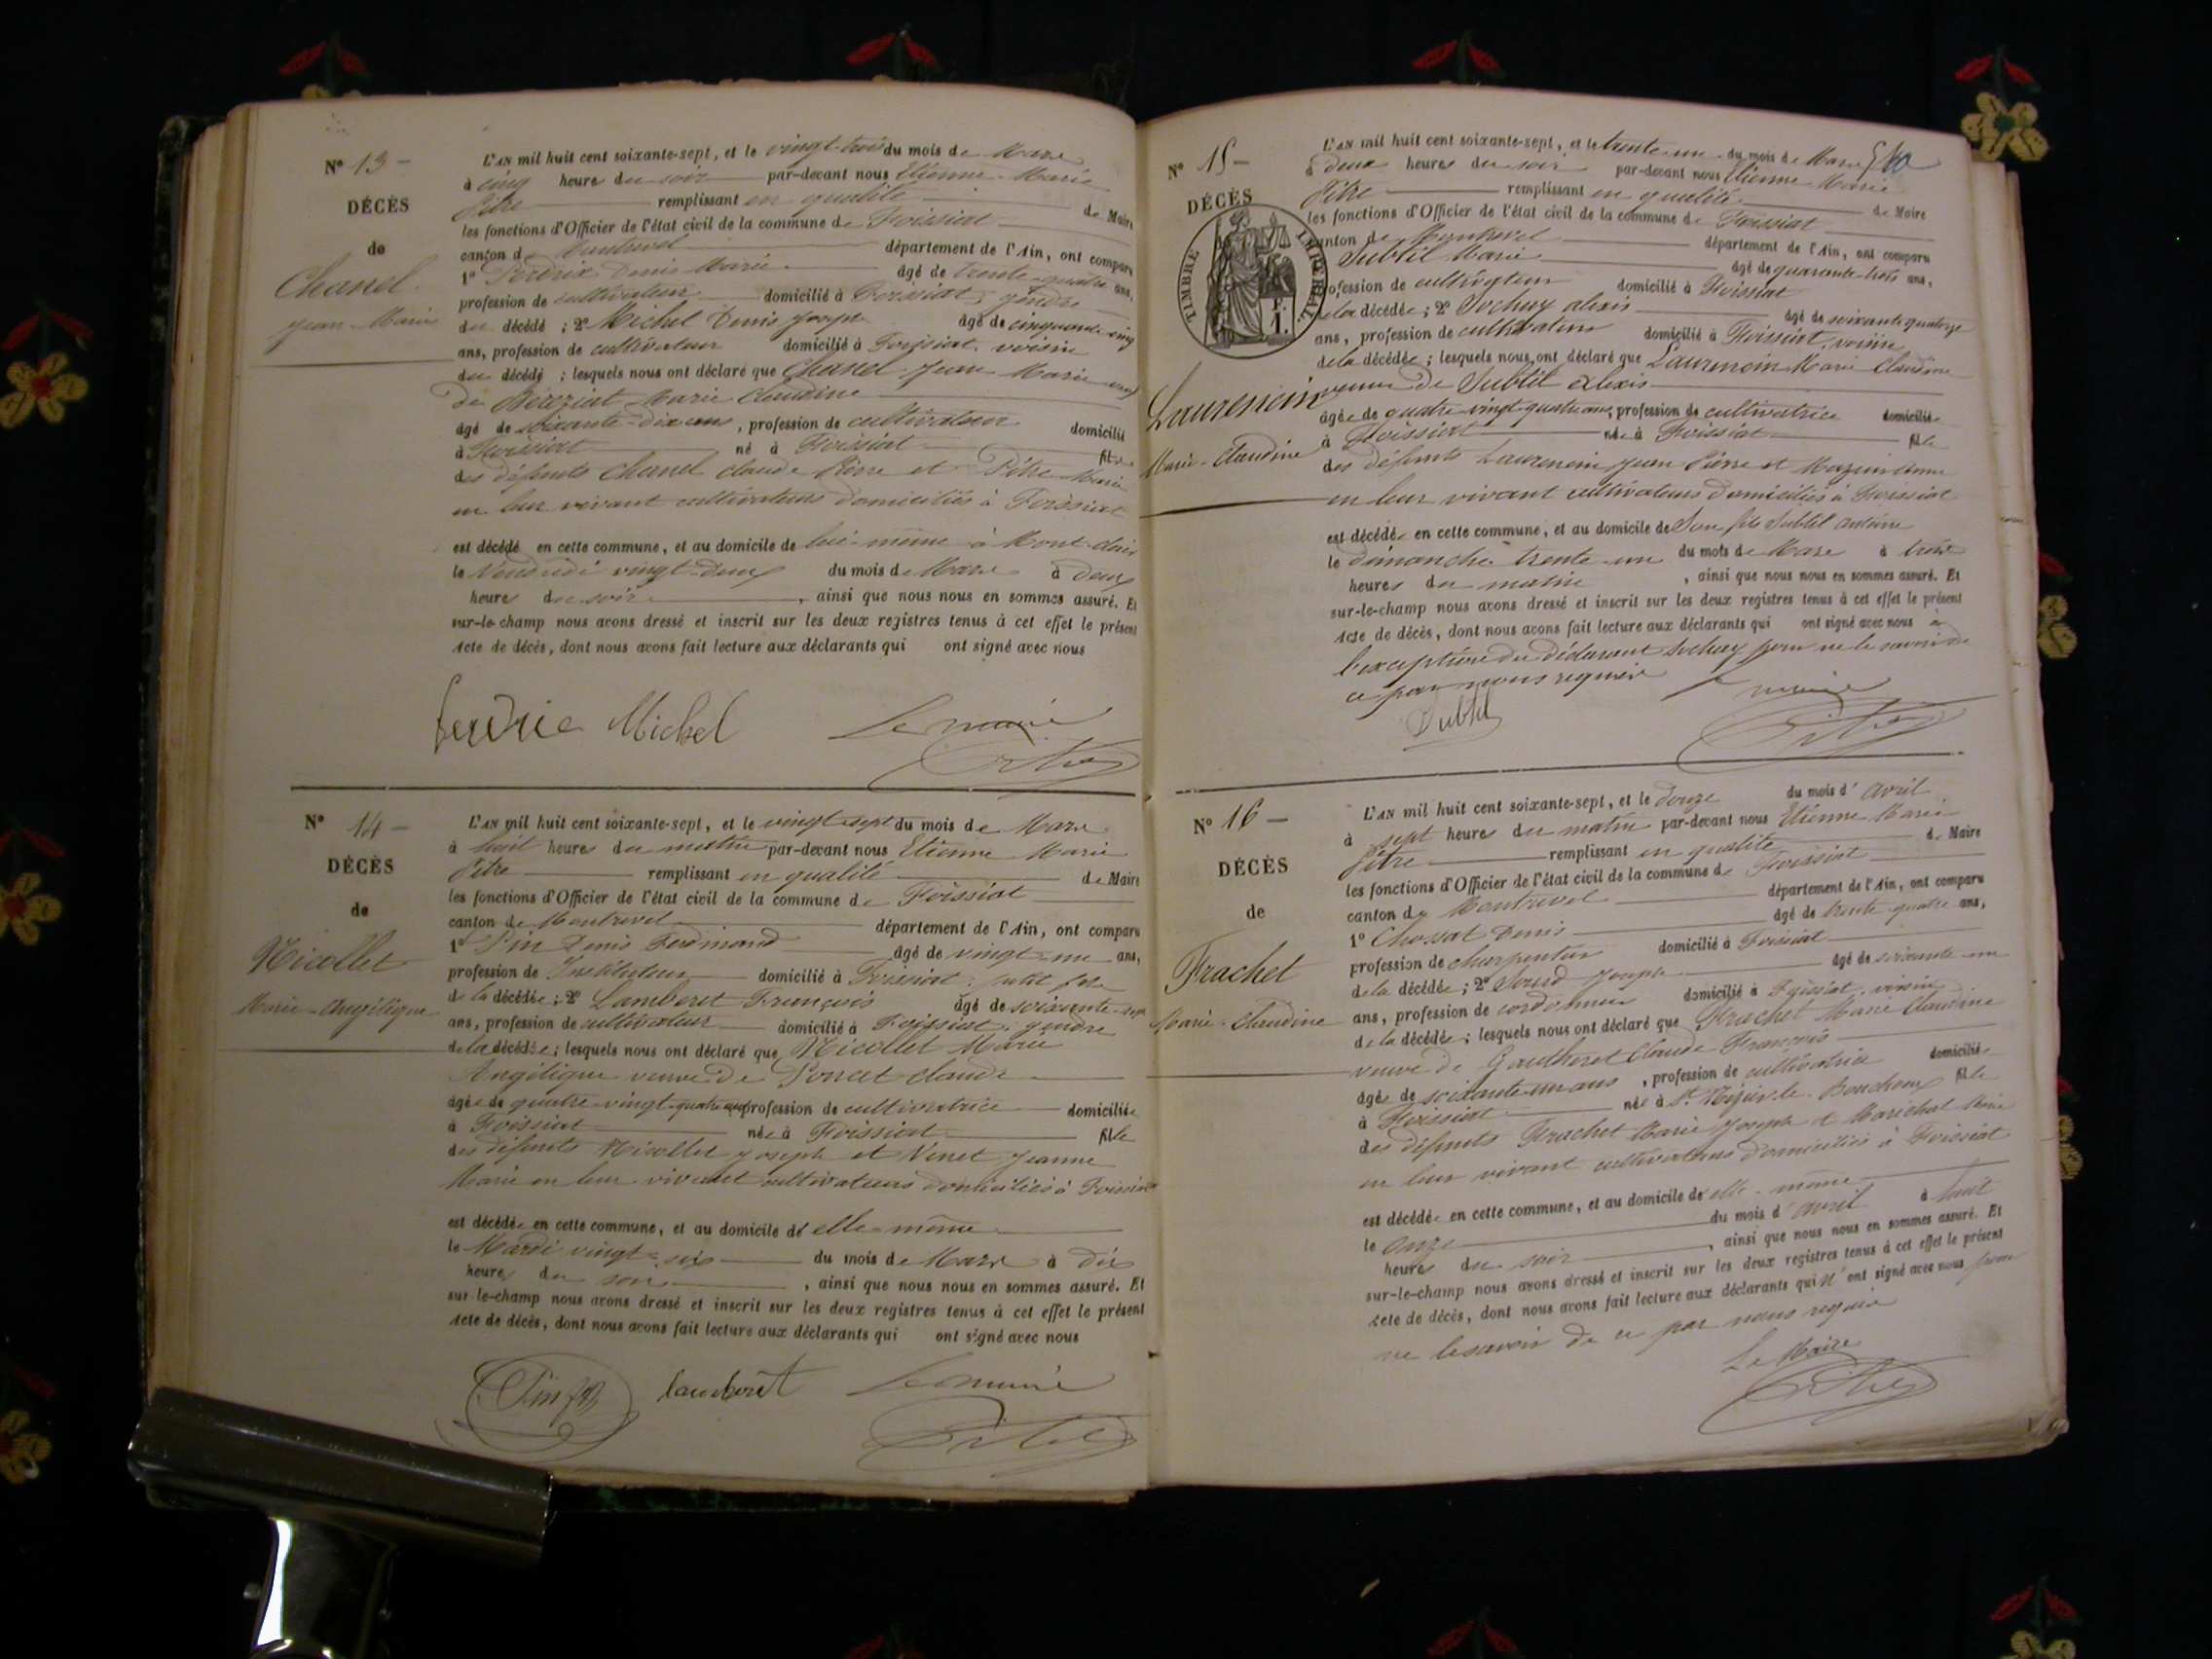 N° 13 -
DÉCÈS
de
Chanel
Jean-Marie
L'AN mil huit cent soixante-sept, et le vingt-trois du mois de Mars
à cinq heures du soir par-devant nous Etienne-Marie
Pitre remplissant en qualité de Maire
les fonctions d'Officier de l'état civil de la commune de Foissiat
canton de Montrevel département de l'Ain, ont comparu
1° Perdrix Denis Marie âgé de trente-quatre ans,
profession de cultivateur domicilié à Foissiat, gendre
du décédé ; 2° Michel Denis Joseph âgé de cinquante-cinq
ans, profession de cultivateur domicilié à Foissiat, voisin
du décédé ; lesquels nous ont déclaré que Chanel Jean Marie veuf
de Béréziat Marie Claudine
âgé de soixante-dix ans, profession de cultivateur domicilié
à Foissiat né à Foissiat fils
des défunts Chanel Claude Pierre et Pitre Marie
en leur vivant cultivateurs domiciliés à Foissiat
est décédé en cette commune, et au domicile de lui-même à
le Vendredi vingt-deux du mois de Mars à deux
heures du soir, ainsi que nous nous en sommes assuré. Et
sur-le-champ nous avons dressé et inscrit sur les deux registres tenus à cet effet le présent
Acte de décès, dont nous avons fait lecture aux déclarants qui ont signé avec nous
Michel Le maire
Pitre
N° 14 -
DÉCÈS
de
Nicollet
Marie-Angélique
L'AN mil huit cent soixante-sept, et le vingt-sept du mois de Mars
à huit heures du matin par-devant nous Etienne Marie
Pitre remplissant en qualité de Maire
les fonctions d'Officier de l'état civil de la commune de Foissiat
canton de Montrevel département de l'Ain, ont comparu
1° Pin Denis Ferdinand âgé de vingt-un ans,
profession de Instituteur domicilié à Foissiat, petit fils
de la décédée ; 2° Lamberet François âgé de soixante-sept
ans, profession de cultivateur domicilié à Foissiat, gendre
de la décédée ; lesquels nous ont déclaré que Nicollet Marie
Angélique veuve de Poncet Claude
âgée de quatre-vingt-quatre ans profession de cultivatrice domiciliée
à Foissiat née à Foissiat fille
des défunts Nicollet Joseph et Vinet Jeanne
Marie en leur vivant cultivateurs domiciliés à Foissiat
est décédée en cette commune, et au domicile de elle-même
le Mardi vingt-six du mois de Mars à dix
heures du soir, ainsi que nous nous en sommes assuré. Et
sur-le-champ nous avons dressé et inscrit sur les deux registres tenus à cet effet le présent
Acte de décès, dont nous avons fait lecture aux déclarants qui ont signé avec nous
Pin lamberet Le maire
Pitre
N° 15 -
DÉCÈS
TIMBRE IMPÉRIAL
F.
1.
Laurencin
Marie-Claudine
L'AN mil huit cent soixante-sept, et le trente-un du mois de Mars
à deux heures du soir par-devant nous Etienne Marie
Pitre remplissant en qualité de Maire
les fonctions d'Officier de l'état civil de la commune de Foissiat
canton de Montrevel département de l'Ain, ont comparu
Subtil Marie âgé de quarante-trois ans,
profession de cultivateur domicilié à Foissiat
de la décédée ; 2° Sochay Alexis âgé de soixante quatorze
ans, profession de cultivateur domicilié à Foissiat, voisin
de la décédée ; lesquels nous ont déclaré que Laurencin Marie Claudine
veuve de Subtil Alexis
âgée de quatre-vingt-quatre ans, profession de cultivatrice domiciliée
à Foissiat née à Foissiat fille
des défunts Laurencin Jean Pierre et Mazuir Anne
en leur vivant cultivateurs domiciliés à Foissiat
est décédée en cette commune, et au domicile de son fils Subtil Antoine
le dimanche trente-un du mois de Mars à trois
heures du matin, ainsi que nous nous en sommes assuré. Et
sur-le-champ nous avons dressé et inscrit sur les deux registres tenus à cet effet le présent
Acte de décès, dont nous avons fait lecture aux déclarants qui ont signé avec nous à
l'exception du déclarant Sochay pour ne le savoir de
ce par nous requis Le maire
Subtil Pitre
N° 16 -
DÉCÈS
de
Frachet
Marie-Claudine
L'AN mil huit cent soixante-sept, et le douze du mois d'avril
à sept heures du matin par-devant nous Etienne Marie
Pitre remplissant en qualité de Maire
les fonctions d'Officier de l'état civil de la commune de Foissiat
canton de Montrevel département de l'Ain, ont comparu
1° Chossat Denis âgé de trente-quatre ans,
profession de charpentier domicilié à Foissiat
de la décédée ; 2° Sourd Joseph âgé de soixante-un
ans, profession de cordonnier domicilié à Foissiat, voisin
de la décédée ; lesquels nous ont déclaré que Frachet Marie Claudine
veuve de Gautheret Claude François
âgée de soixante-un ans, profession de cultivatrice domiciliée
à Foissiat née à St Nizier le Bouchoux fille
des défunts Frachet Marie Joseph et Maréchal Marie
en leur vivant cultivateurs domiciliés à Foissiat
est décédée en cette commune, et au domicile de elle-même
le onze du mois d'avril à huit
heures du soir, ainsi que nous nous en sommes assuré. Et
sur-le-champ nous avons dressé et inscrit sur les deux registres tenus à cet effet le présent
Acte de décès, dont nous avons fait lecture aux déclarants qui n'ont signé avec nous pour
ne le savoir de ce par nous requis
Le Maire
Pitre